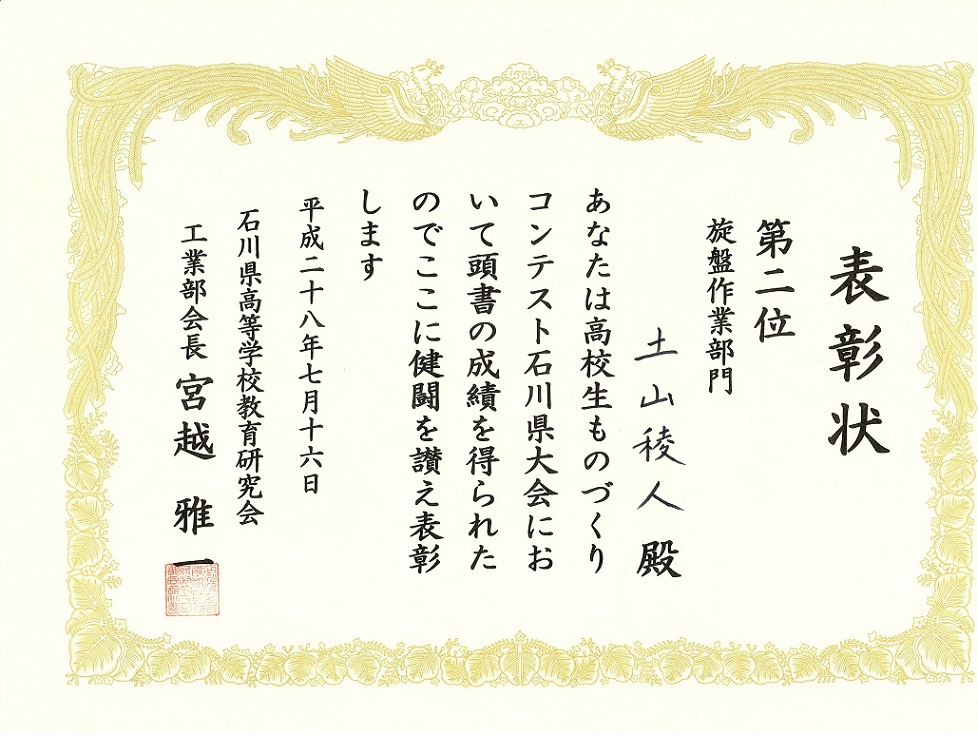 表彰状
第二位
旋盤作業部門
土山稜人殿
あなたは高校生ものづくり
コンテスト石川県大会にお
いて頭書の成績を得られた
のでここに健闘を讃え表彰
します
平成二十八年七月十六日
石川県高等学校教育研究会
工業部会長 宮越 雅一